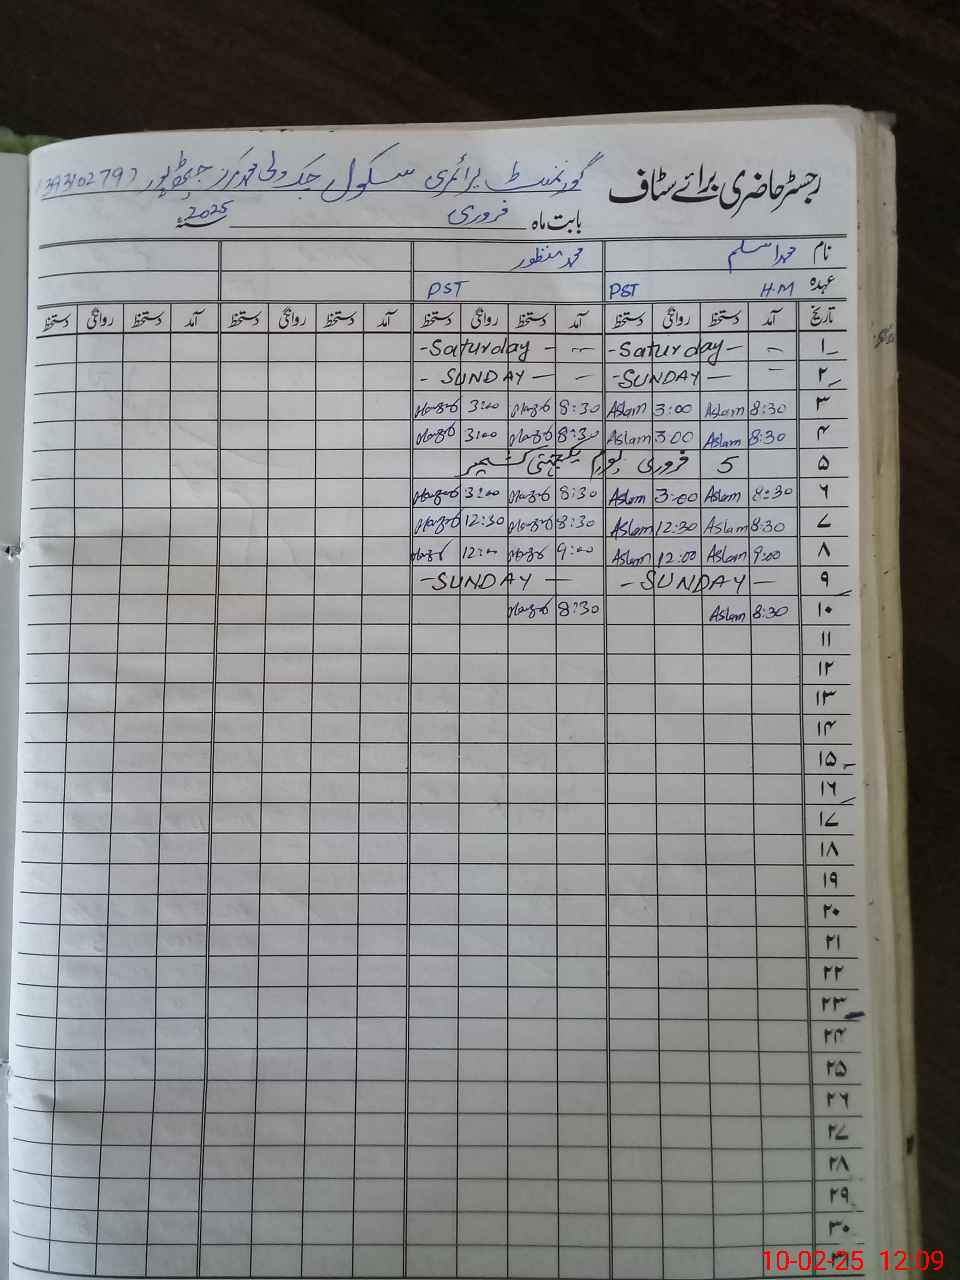 رجسٹر حاضری برائے سٹاف گورنمنٹ پرائمری سکول چک ولی محمد مرکز
بابت ماہ فروری سنہ 2025ء
نام محمد اسلم محمد منظور
عہدہ H.M PST PST
تاریخ آمد دستخط روانگی دستخط آمد دستخط روانگی دستخط آمد دستخط روانگی دستخط آمد دستخط روانگی دستخط
۱ - Saturday - - Saturday -
۲ - SUNDAY - - SUNDAY -
۳ 8:30 Aslam 3:00 Aslam 8:30 3:00
۴ 8:30 Aslam 3:00 Aslam 8:30 3:00
۵ 5 فروری یوم یکجہتی کشمیر
۶ 8:30 Aslam 3:00 Aslam 8:30 3:00
۷ 8:30 Aslam 12:30 Aslam 8:30 12:30
۸ 9:00 Aslam 12:00 Aslam 9:00 12:00
۹ - SUNDAY - - SUNDAY -
۱۰ 8:30 Aslam 8:30
۱۱
۱۲
۱۳
۱۴
۱۵
۱۶
۱۷
۱۸
۱۹
۲۰
۲۱
۲۲
۲۳
۲۴
۲۵
۲۶
۲۷
۲۸
۲۹
۳۰
۳۱
10-02-25 12:09